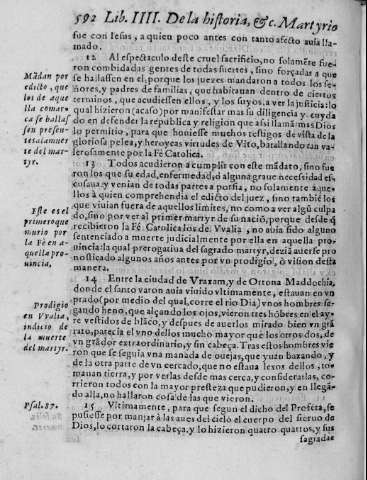 592 Lib. IIII. De la historia, &c. Martyrio
fue con Iesus, a quien poco antes con tanto afecto auia lla-
mado.
12 Al espectaculo deste cruel sacrificio, no solamẽte fue-
ron combidadas gentes de todas suertes, sino forçadas a que
se hallassen en el, porque los juezes mandaron a todos los se-
ñores, y padres de familias, que habitauan dentro de ciertos
terminos, que acudiessen ellos, y los suyos, a ver la justicia: lo
qual hizieron (acaso) por manifestar mas su diligencia y cuyda
do en defender la republica y religion que assi llamã: mas Dios
lo permitio, para que houiesse muchos testigos de vista de la
gloriosa pelea, y heroycas virtudes de Vito, batallando tan va-
lerosamente por la Fè Catolica.
Mãdan por
edicto, que
los de aque
lla comar-
ca se hallas
sen presen-
tes al muer
te del mar-
tyr.
13 Todos acudieron a cumplir con este mãdato, sino fue-
ron los que su edad, enfermedad, ò alguna graue necessidad es-
cusaua, y venian de todas partes a porfia, no solamente aque-
llos à quien comprehendia el edicto del juez, sino tambiẽ los
que viuian fuera de aquellos limites, no como a ver algũ culpa
do, sino por ver al primer martyr de su nació, porque desde q̃
recibieron la Fè Catolica los de Vualia, no auia sido alguno
sentenciado a muerte judicialmente por ella en aquella pro-
uincia: la qual prerogatiua del sagrado martyr, dezia auerse pro
nosticado algunos años antes por vn prodigio, ò vision desta
manera.
Este es el
primero que
murio por
la Fè en a-
quella pro-
uincia.
14 Entre la ciudad de Vraxam, y de Ortona Maddochia,
donde el santo varon auia viuido vltimamente, estauan en vn
prado (por medio del qual, corre el rio Dia) vnos hombres se-
gando heno, que alçando los ojos, vieron tres hõbres en el ay-
re vestidos de blãco, y despues de auerlos mirado bien vn grã
rato, parecia el vno dellos mucho mayor que los otros dos, de
vn grãdor extraordinario, y sin cabeça. Tras estos hombres vie
ron que se seguia vna manada de ouejas, que yuan baxando, y
de la otra parte de vn cercado, que no estaua lexos dellos, to-
mauan tierra, y por verlas desde mas cerca, y considerarlas, co-
rrieron todos con la mayor presteza que pudieron, y en llegã-
do alla, no hallaron cosa de las que vieron.
Prodigio
en Vualia,
indicio de
la muerte
del martyr.
15 Vltimamente, para que segun el dicho del Profeta, se
pusiesse por manjar à las aues del cielo el cuerpo del sieruo de
Dios, lo cortaron la cabeça, y lo hizieron quatro quartos, y sus
Psal. 87.
sagradas